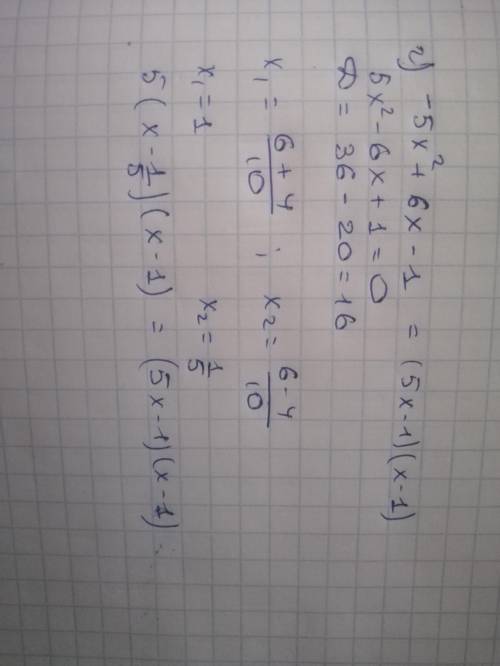 г) -5x² + 6x - 1 = (5x-1)(x-1)
5x² - 6x + 1 = 0
D = 36 - 20 = 16
x₁ = (6+4)/10 ; x₂ = (6-4)/10
x₁ = 1 x₂ = 1/5
5(x - 1/5)(x - 1) = (5x-1)(x-1)